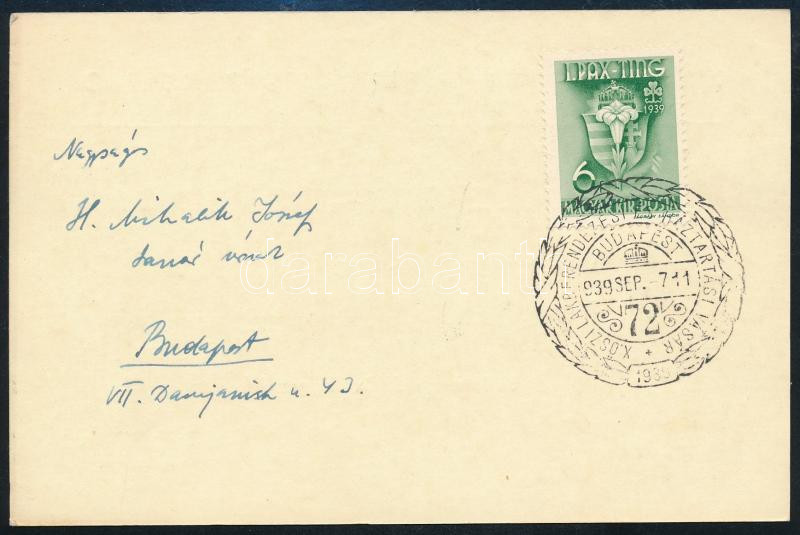 I. PAX-TING
1939
6
MAGYAR KIR. POSTA
X. ŐSZI LAKBERENDEZÉSI ÉS HÁZTARTÁSI VÁSÁR +
BUDAPEST
939 SEP. -7 11
72
1939
Nagyságos
H. Mihalik József
tanár úrnak
darabanth
Budapest
VII. Damjanich u. 43.